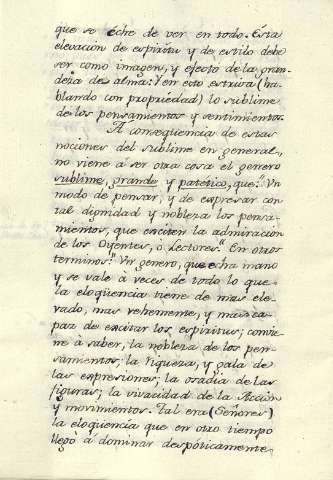 que se éche de ver en todo. Esta
elevacion de espiritu y de estilo debe
ser como imagen, y efecto de la gran-
deza de alma: Y en esto estriva (ha-
blando con propriedad) lo sublime
de los pensamientos y sentimientos.
A conseqüencia de estas
nociones del sublime en general,
no viene à ser otra cosa el genero
sublime, grande y patético, que: "Un
modo de pensar, y de expresar con
tal dignidad y nobleza los pensa-
mientos, que exciten la admiracion
de los Oyentes, ò Lectores." En otros
terminos: "Un genero, que echa mano
y se vale à veces de todo lo que
la eloqüencia tiene de mas ele-
vado, mas vehemente, y mas ca-
paz de excitar los espiritus; convie-
ne à saber, la nobleza de los pen-
samientos; la riqueza, y gala de
las expresiones; la osadia de las
figuras; la vivacidad de la Accion
y movimientos. Tal era (Señores)
la eloqüencia que en otro tiempo
llegò à dominar despóticamente